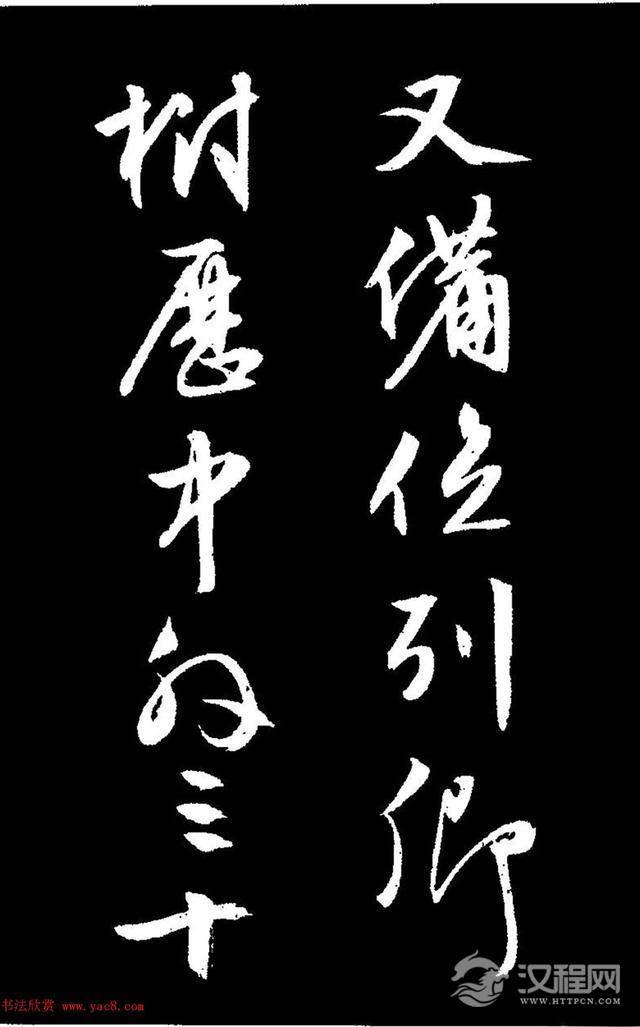 又備位列卿
歷中外三十
书法欣赏 www.yac8.com
汉程网
WWW.HTTPCN.COM